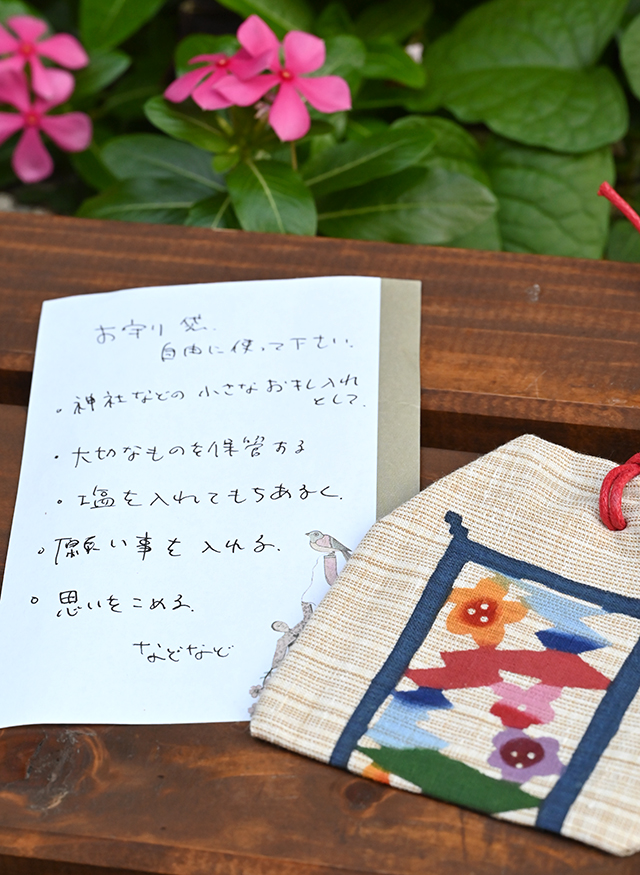 お守り袋.
自由に使って下さい.
・神社などの小さなお札入れ
として.
・大切なものを保管する
・塩を入れてもちあるく.
・願い事を入れる.
・思いをこめる.
などなど